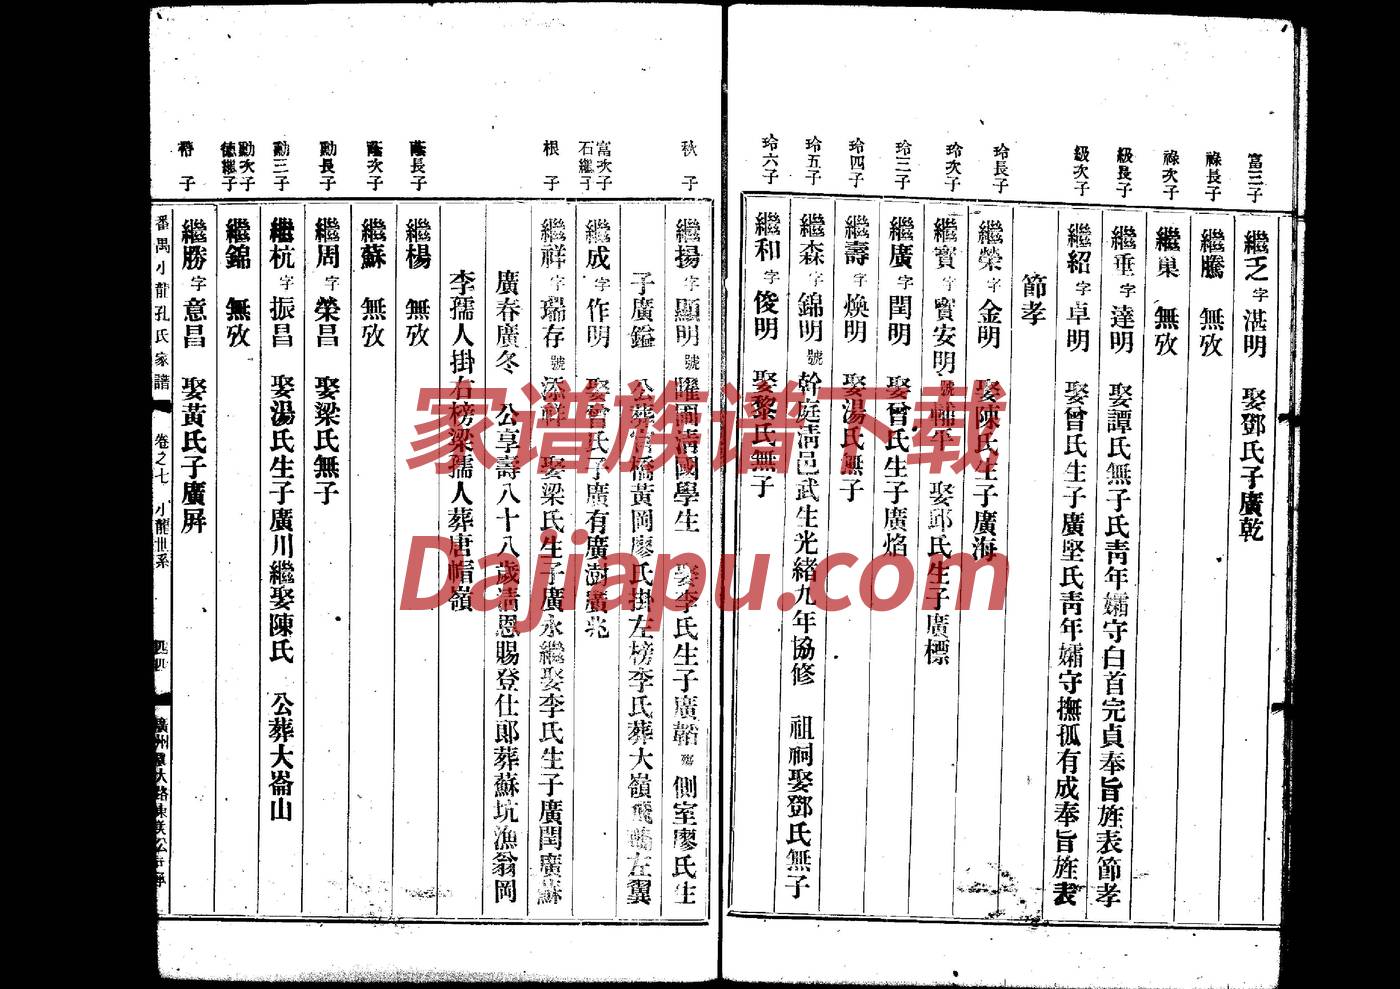 富三子
繼乏字湛明 娶鄧氏子廣乾
祿長子
繼騰 無攷
祿次子
繼巢 無攷
級長子
繼垂字達明 娶譚氏無子氏靑年孀守白首完貞奉旨旌表節孝
級次子
繼紹字卓明 娶曾氏生子廣堅氏靑年孀守撫孤有成奉旨旌表
節孝
玲長子
繼榮字金明 娶陳氏生子廣海
玲次子
繼寶字寶安明號輔平 娶邱氏生子廣標
玲三子
繼廣字閏明 娶曾氏生子廣焰
玲四子
繼壽字煥明 娶湯氏無子
玲五子
繼森字錦明號幹庭淸邑武生光緒九年協修 祖祠娶鄧氏無子
玲六子
繼和字俊明 娶黎氏無子
秋子
繼揚字顯明號 國淸國學生 娶李氏生子廣韜 側室廖氏生
子廣鎰 公葬官橋黃岡廖氏掛左榜李氏葬大嶺飛鵝左翼
富次子
石繼子
繼成字作明 娶曾氏子廣有廣澍廣兆
根子
繼祥字瑞存號添祥 娶梁氏生子廣永繼娶李氏生子廣閏廣蘇
廣春廣冬 公享壽八十八歲淸恩賜登仕郎葬蘇坑漁翁岡
李孺人掛右榜梁孺人葬唐帽嶺
蔭長子
繼楊 無攷
蔭次子
繼蘇 無攷
勤長子
繼周字榮昌 娶梁氏無子
勤三子
繼杭字振昌 娶湯氏生子廣川繼娶陳氏 公葬大崙山
勤次子
德繼子
繼錦 無攷
子
繼勝字意昌 娶黃氏子廣屏
番禺小龍孔氏家譜 卷之七 小龍世系
家谱族谱下载
Dajiapu.com